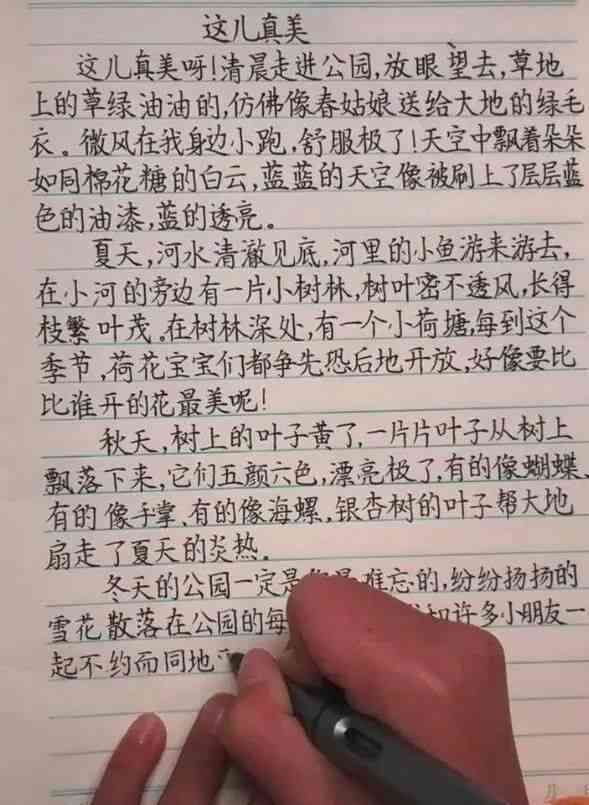 这儿真美
这儿真美呀!清晨走进公园,放眼望去,草地
上的草绿油油的,仿佛像春姑娘送给大地的绿毛
衣。微风在我身边小跑,舒服极了!天空中飘着朵朵
如同棉花糖的白云,蓝蓝的天空像被刷上了层层蓝
色的油漆,蓝的透亮。
夏天,河水清澈见底,河里的小鱼游来游去,
在小河的旁边有一片小树林,树叶密不透风,长得
枝繁叶茂。在树林深处,有一个小荷塘,每到这个
季节,荷花宝宝们都争先恐后地开放,好像要比
比谁开的花最美呢!
秋天,树上的叶子黄了,一片片叶子从树上
飘落下来,它们五颜六色,漂亮极了,有的像蝴蝶、
有的像手掌、有的像海螺,银杏树的叶子帮大地
扇走了夏天的炎热。
冬天的公园一定是难忘的,纷纷扬扬的
雪花散落在公园的每和许多小朋友一
起不约而同地